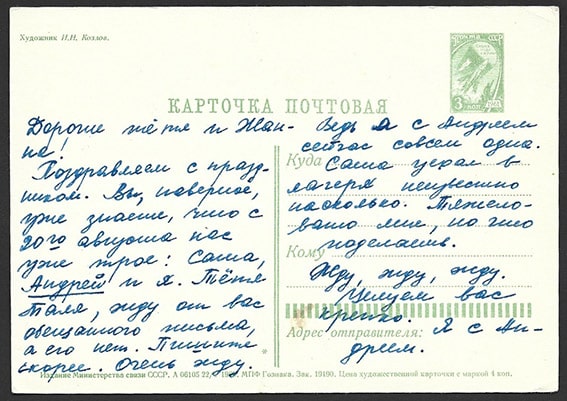 Художник И.И. Козлов.
КАРТОЧКА ПОЧТОВАЯ
Дорогие тётя и Жан-
на!
Поздравляем с празд-
ником. Вы, наверное,
уже знаете, что с
20го августа нас
уже трое: Саша,
Андрей и я. Тётя
Таля, жду от вас
обещанного письма,
а его нет. Пишите
скорее. Очень жду.
Ведь я с Андреем
сейчас совсем одна.
Куда
Саша уехал в
лагеря неизвестно
насколько. Тяжело-
вато мне, но что
Кому
поделаешь.
Жду, жду, жду.
Целуем вас
крепко.
Адрес отправителя:
Я с Ан-
дреем.
3 коп
Издание Министерства связи СССР. А 06105 22, МПФ Гознака. Зак. 19190. Цена художественной карточки с маркой 4 коп.